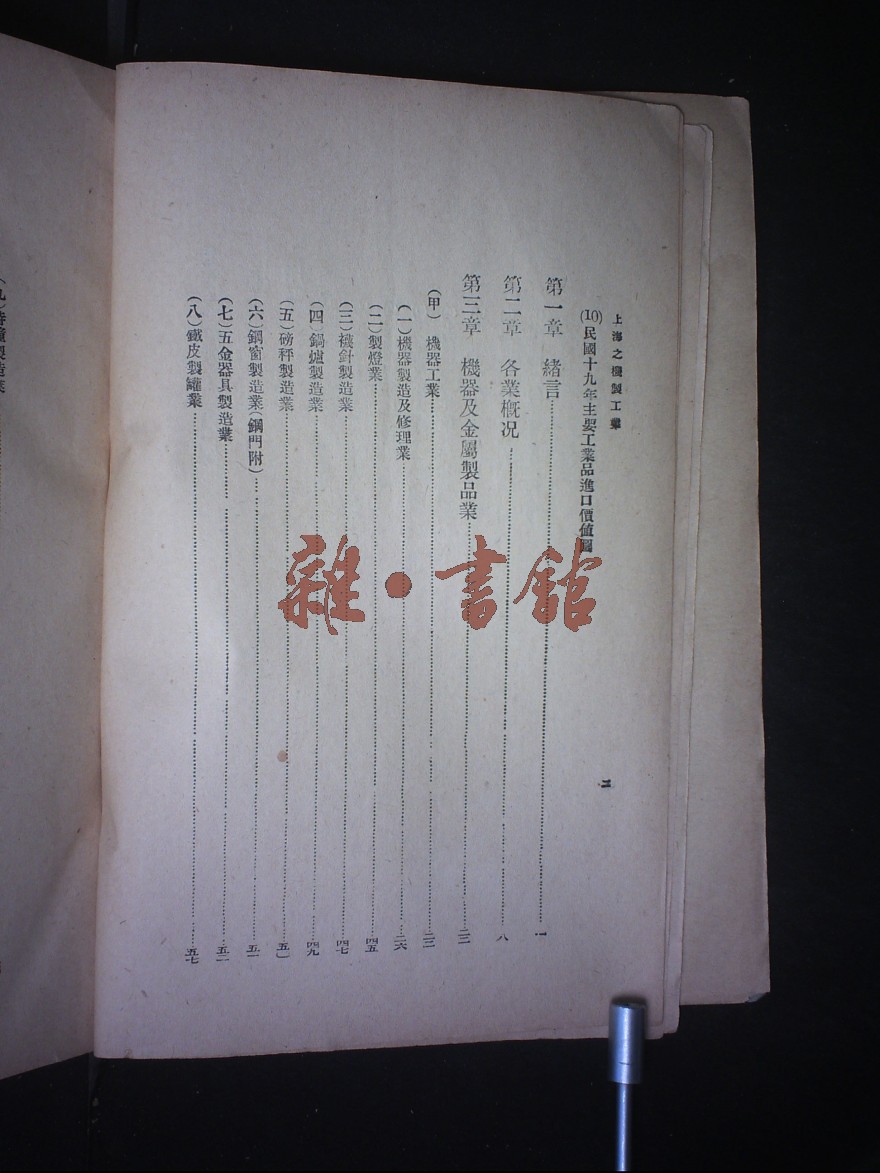 上海之機製工業
二
(10)民國十九年主要工業品進口價值圖
第一章　緒言……一
第二章　各業概况……八
第三章　機器及金屬製品業……二三
(甲)　機器工業……二三
(一)機器製造及修理業……二六
(二)製燈業……四五
(三)襪針製造業……四七
(四)鍋爐製造業……四九
(五)磅秤製造業……五〇
(六)鋼窗製造業(鋼門附)……五一
(七)五金器具製造業……五二
(八)鐵皮製罐業……五七
雜·書館